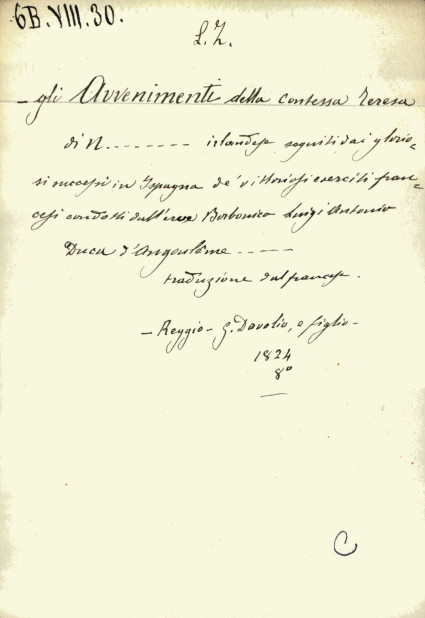 6B.VIII.30.
L.Z.
- gli Avvenimenti della contessa Teresa
di N........ irlandese seguiti dai glorio=
si successi in Ispagna de' vittoriosi eserciti fran=
cesi condotti dall'eroe Borbonico Luigi Antonio
Duca d'Angoulême .....
traduzione dal francese.
- Reggio - G. Davolio, e figlio -
1824
8°
C